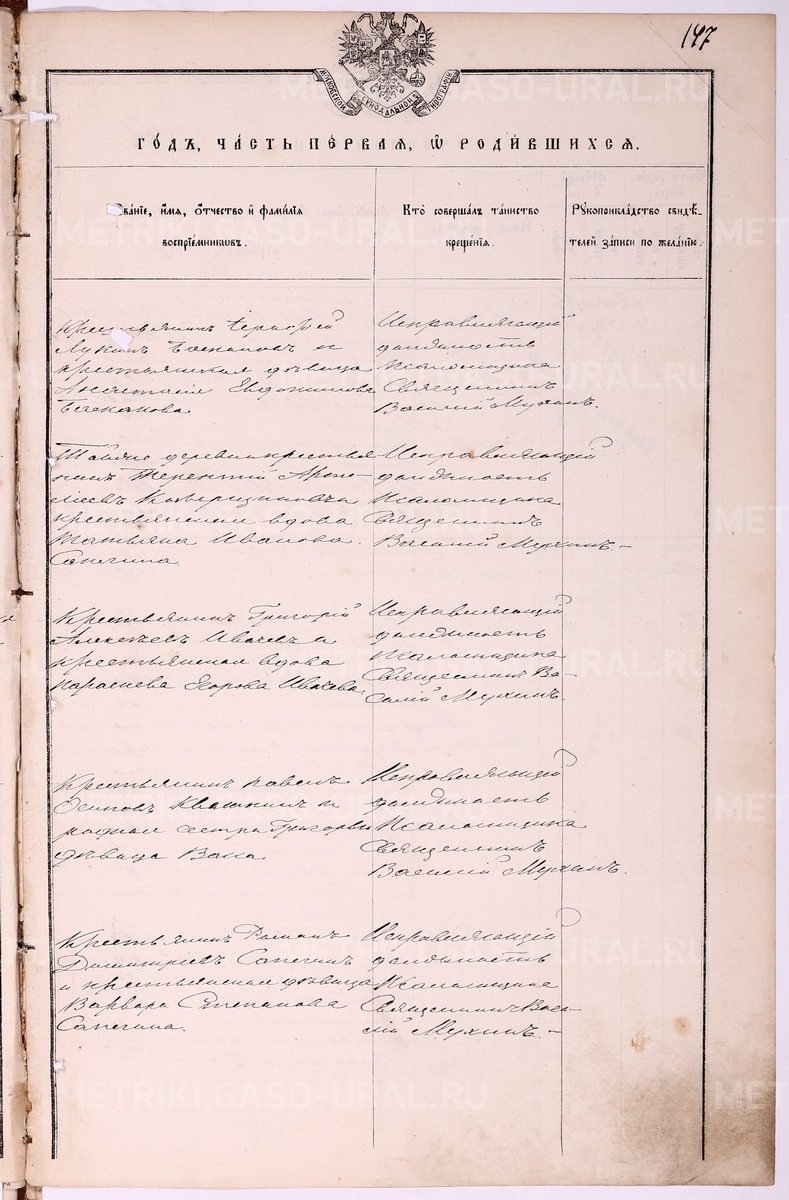 147
МОСКОВСКОЙ СѴНОДАЛЬНОЙ ТИПОГРАФІИ
ГО́ДЪ, ЧА́СТЬ ПЕ́РВАѦ, Ѡ҆ РОДИ́ВШИХСѦ.
Зва́нїе, и҆́мѧ, ѻ҆́тчество и҆ фами́лїѧ
воспрїе́мниковъ.
Кто̀ соверша́лъ та́инство
креще́нїѧ.
Рꙋкоприкла́дство свидѣ́-
телей за́писи по жела́нїю.
Крестьянинъ
Лукинъ и
крестьянская дѣвица
Анастасія Евдокимова
Исправляющій
должность
Псаломщика
Священникъ
Василій Мухинъ.
Тойже деревни крестья
нинъ Терентій Арте-
крестьянская вдова
Татьяна Иванова
Сапегина
Исправляющій
должность
Псаломщика
Священникъ
Василій Мухинъ. –
Крестьянинъ Григорій
Алексѣевъ и
крестьянская вдова
Параскева Егорова
Исправляющій
должность
Псаломщика
Священникъ Ва-
силій Мухинъ.
Крестьянинъ Павелъ
Осиповъ Квашнинъ и
родная сестра
дѣвица
Исправляющій
должность
Псаломщика
Священникъ
Василій Мухинъ.
Крестьянинъ Романъ
Димитріевъ Сапегинъ
и крестьянская дѣвица
Варвара Степанова
Сапегина.
Исправляющій
должность
Псаломщика
Священникъ Васи-
лій Мухинъ. –
METRIKI.GASO-URAL.RU